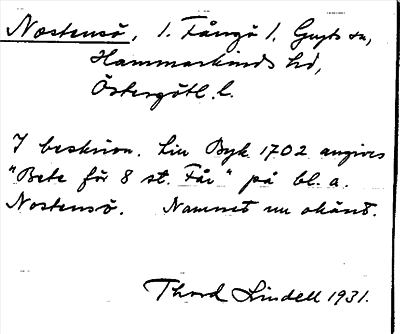 Nostensö, 1. Fångö 1. Gryts sn,
Hammarkinds hd,
Östergötl. l.
I beskrivn. Lin Byk. 1702 angives
"Bete för 8 st. Får" på bl. a.
Nostensö. Namnet nu okänt.
Thord Lindell 1931.